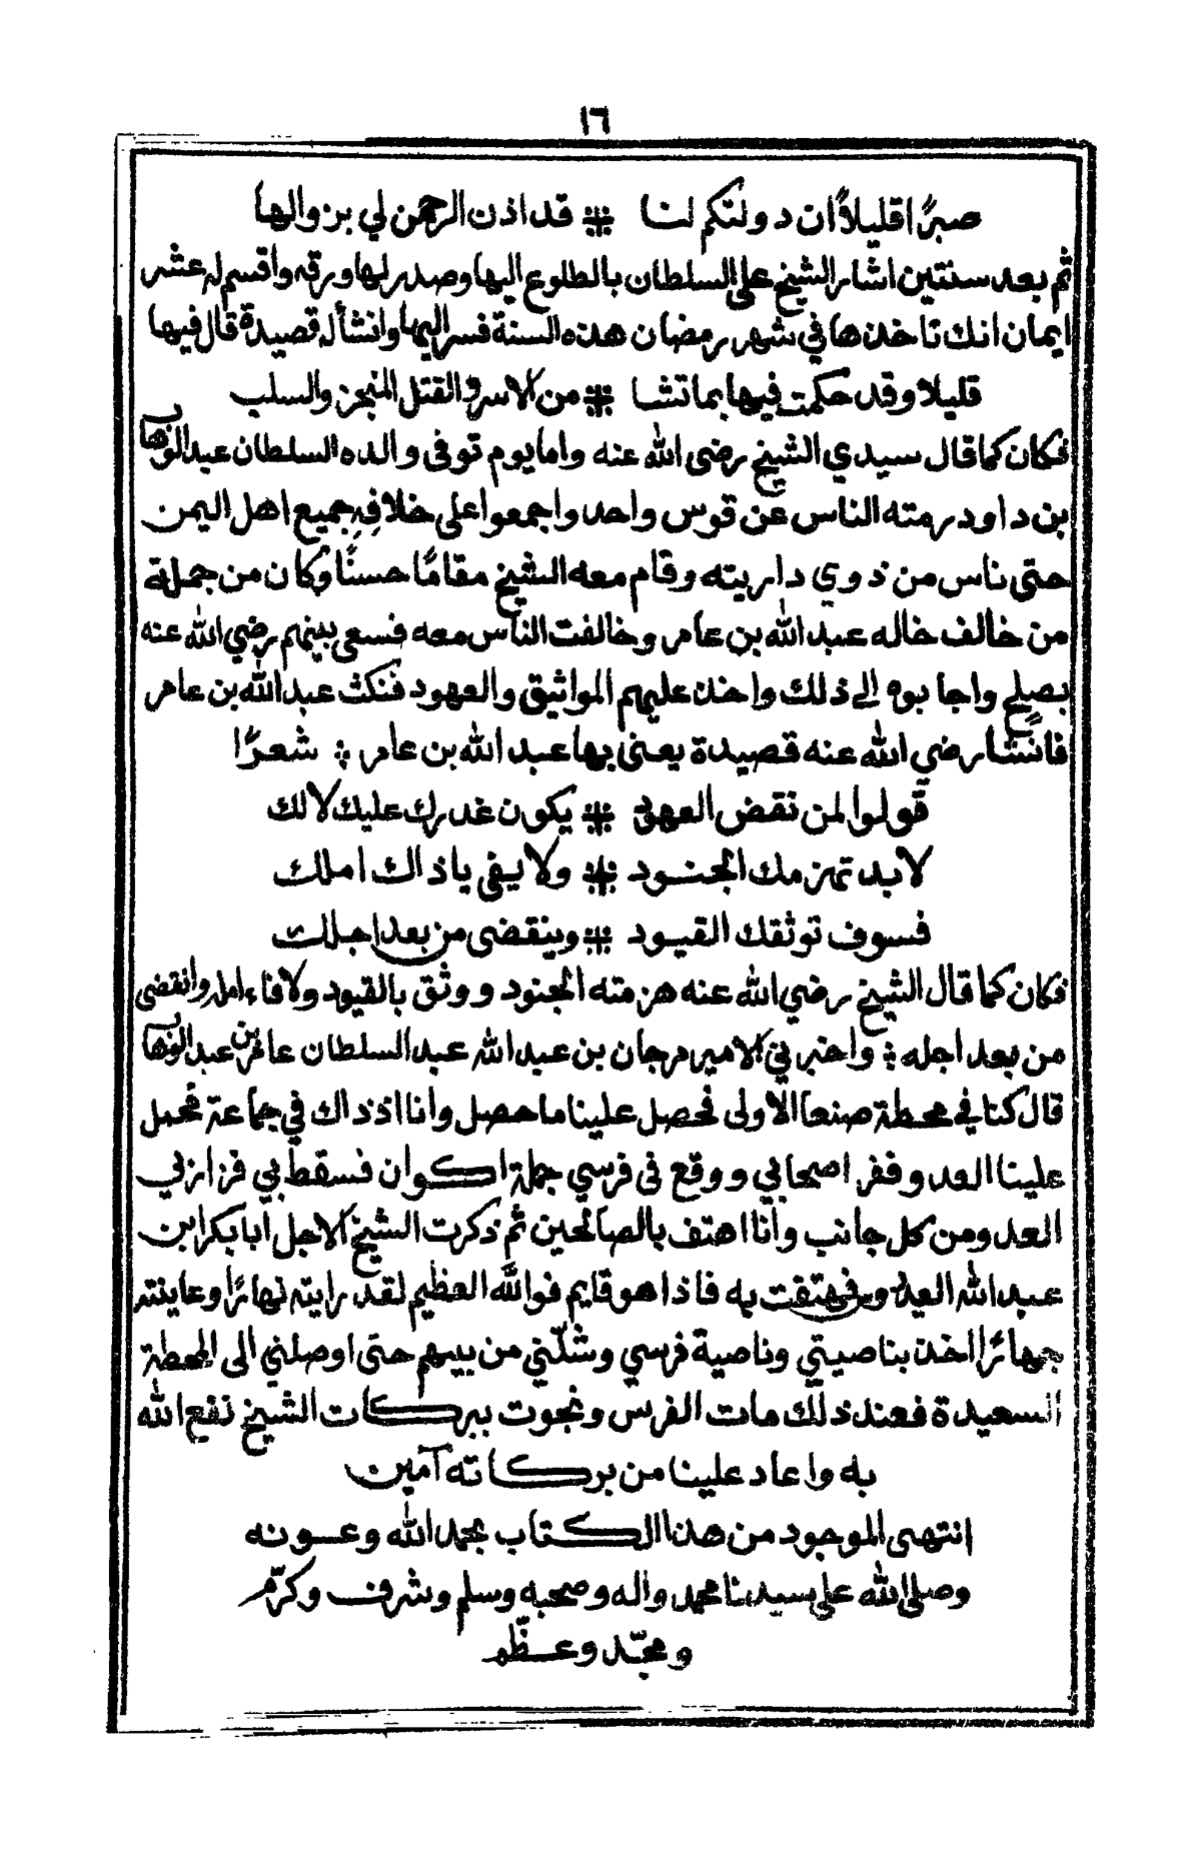 ١٦
صبرًا قليلاً ان دولتكم لنا ❊ قد اذن الرحمن لي بزوالها
ثم بعد سنتين اشار الشيخ على السلطان بالطلوع اليها وصدر لها ورقه واقسم له عشر
ايمان انك تاخذها في شهر رمضان هذه السنة فسر اليها وانشأ له قصيدة قال فيها
قليلا وقد حكمت فيها بما تشا ❊ من الاسر والقتل المنجز والسلب
فكان كما قال سيدي الشيخ رضى الله عنه واما يوم توفى والده السلطان عبد الوهاب
بن داود رمته الناس عن قوس واحد واجمعوا على خلافه جميع اهل اليمن
حتى ناس من ذوي داريته وقام معه الشيخ مقامًا حسنًا وكان من جملة
من خالف خاله عبد الله بن عامر وخالفت الناس معه فسعى بينهم رضي الله عنه
بصلح واجابوه الى ذلك واخذ عليهم المواثيق والعهود فنكث عبد الله بن عامر
فانشا رضي الله عنه قصيدة يعنى بها عبد الله بن عامر ؞ شعرًا
قولوا لمن نقض العهود ❊ يكون غدرك عليك لا لك
لا بد تهزمك الجنود ❊ ولا يفي يا ذاك املك
فسوف توثقك القيود ❊ وينقضى من بعد اجلك
فكان كما قال الشيخ رضي الله عنه هزمته الجنود ووثق بالقيود ولا فاء امله وانقضى
من بعد اجله ؞ واخبرني الامير مرجان بن عبد الله عبد السلطان عامر بن عبد الوهاب
قال كنا في محطة صنعا الاولى فحصل علينا ما حصل وانا اذ ذاك في جماعة فحمل
علينا العدو ففر اصحابي ووقع في فرسي جملة اكوان فسقط بي فزازني
العدو من كل جانب وانا اهتف بالصالحين ثم ذكرت الشيخ الاجل ابا بكر ابن
عبد الله العيدروس فهتفت به فاذا هو قايم فوالله العظيم لقد رايته نهارًا وعاينته
جهارًا اخذ بناصيتي وناصية فرسي وشلّني من بينهم حتى اوصلني الى المحطة
السعيدة فعند ذلك مات الفرس ونجوت ببركات الشيخ نفع الله
به واعاد علينا من بركاته آمين
انتهى الموجود من هذا الكتاب بحمد الله وعونه
وصلى الله على سيدنا محمد واله وصحبه وسلم وشرف وكرّم
ومجّد وعظّم